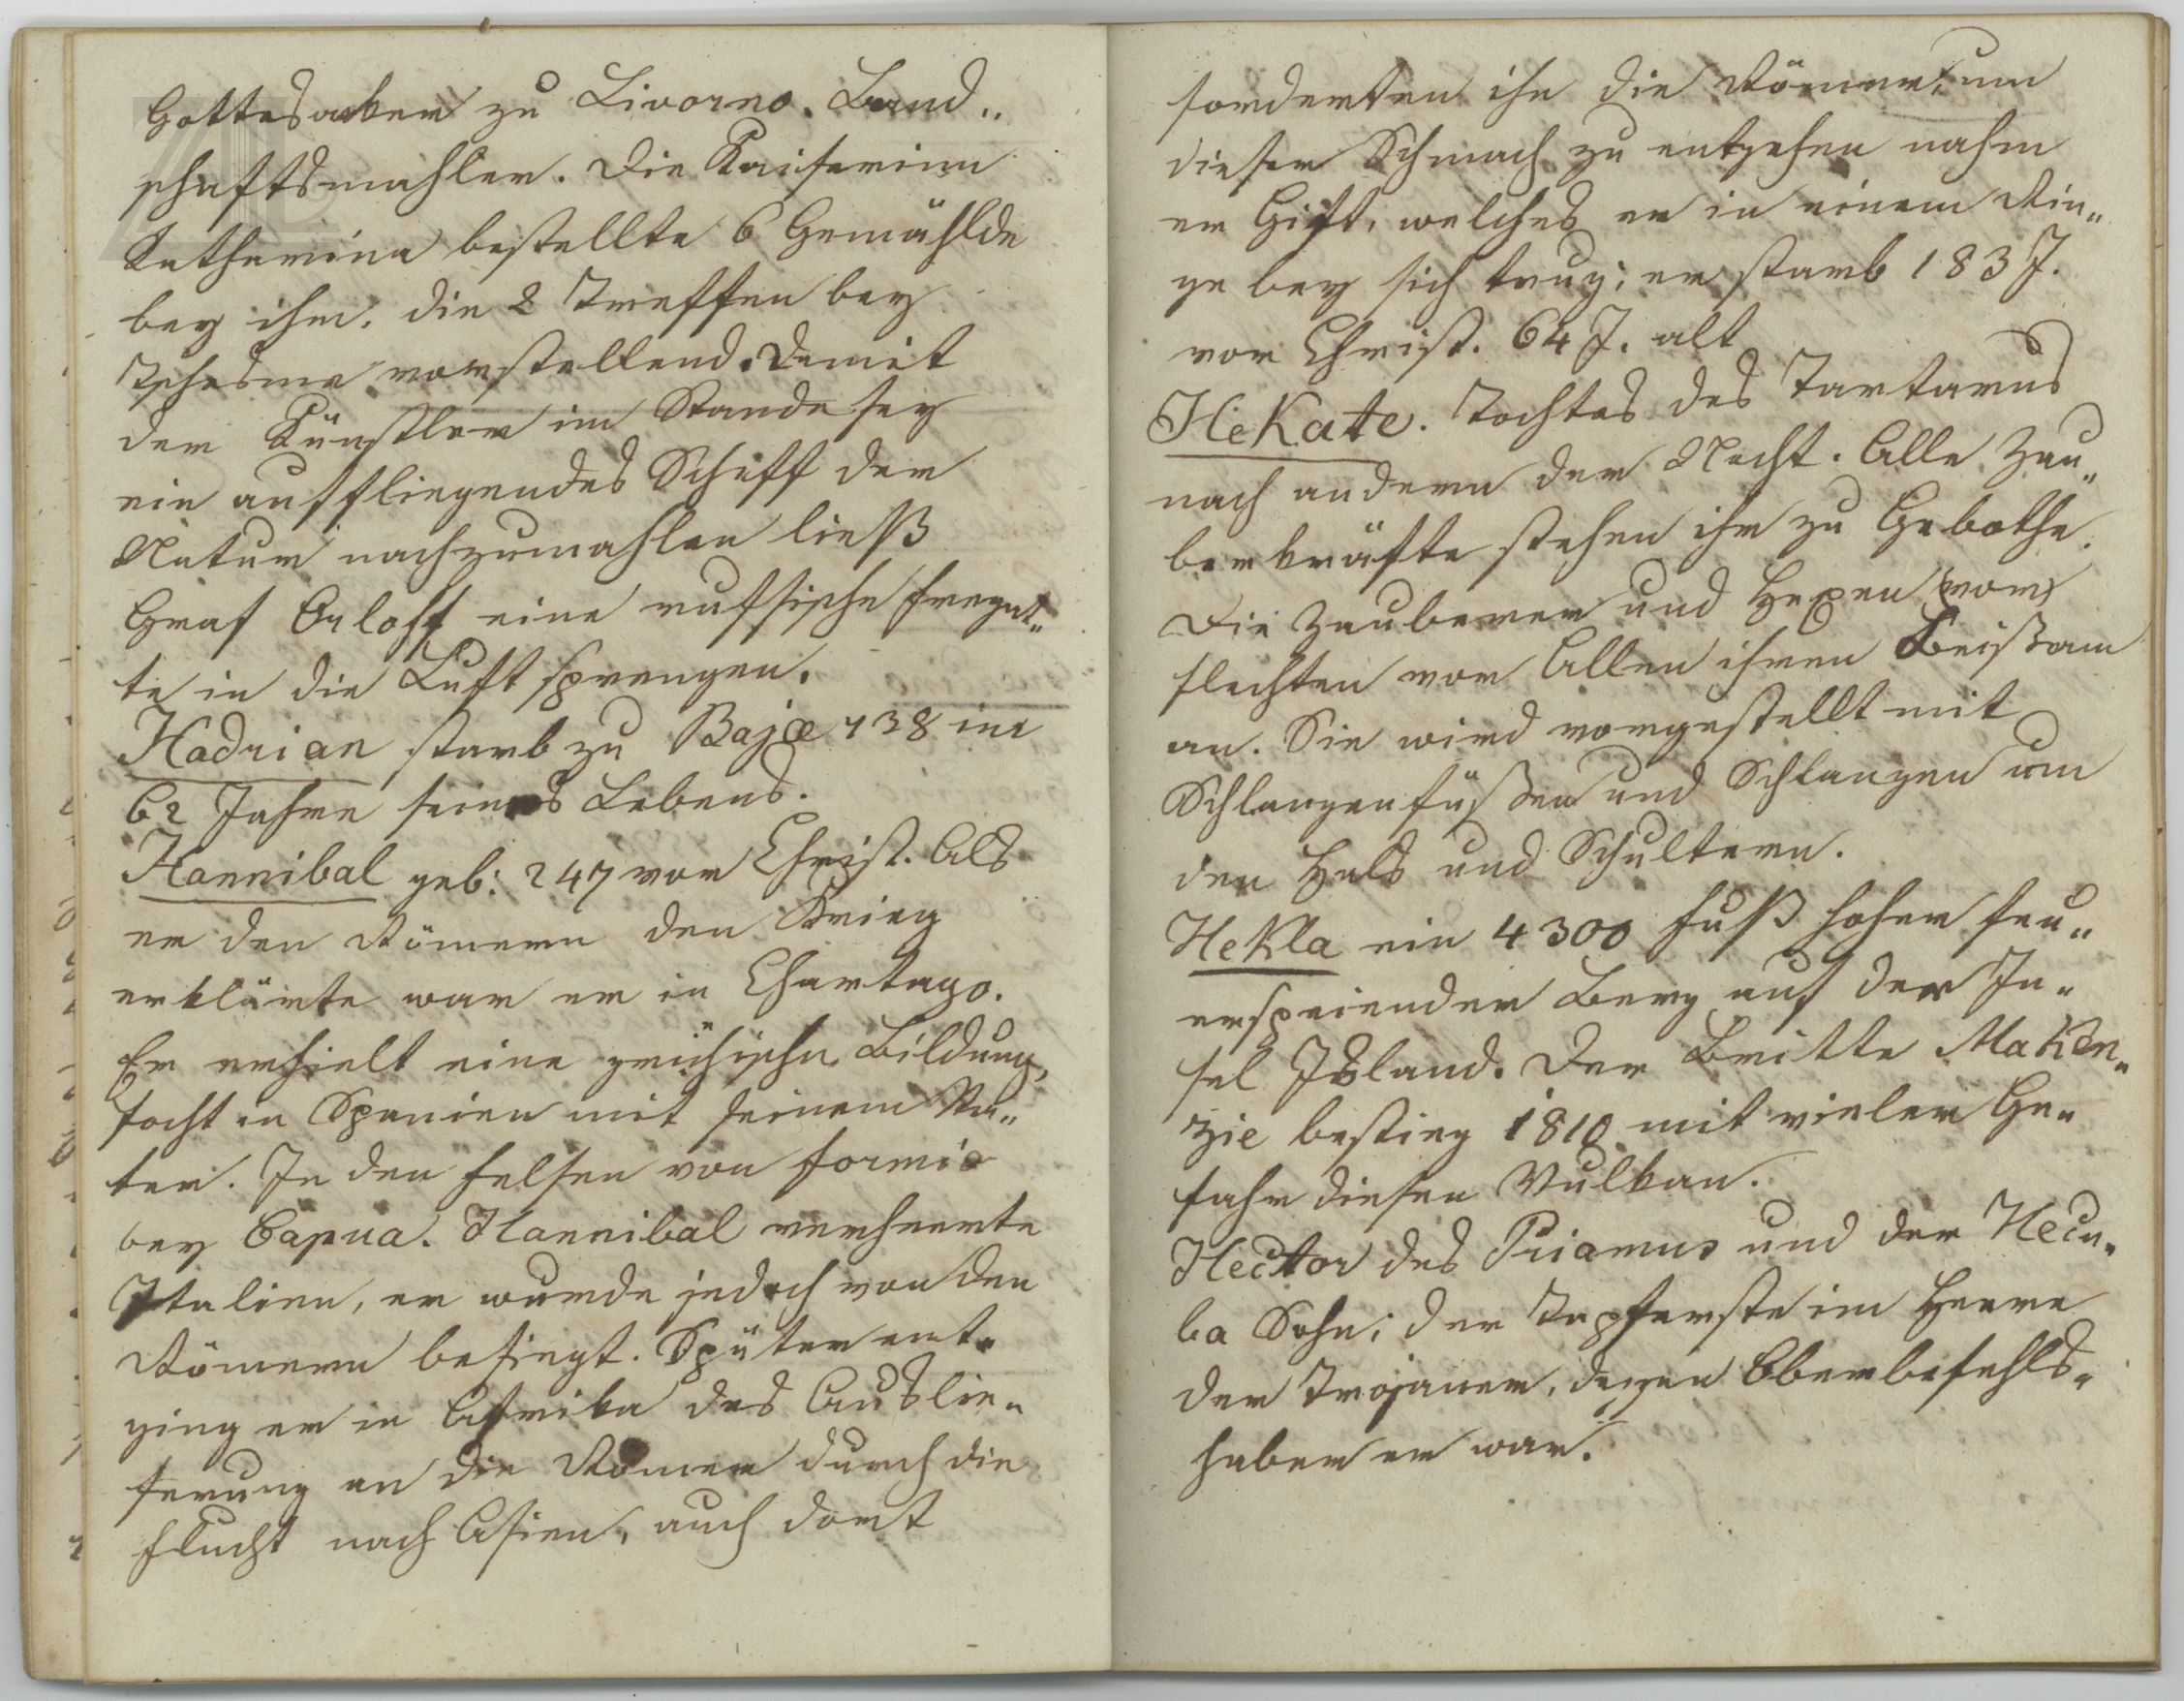 Gottesacker zu Livorno. Land„
schaftsmahler. Die Kaiserinn
Katharina bestellte 6 Gemählde
bey ihm. die 2 Treffen bey
Tschesme vorstellend. Damit
der Künstler im Stande sey
ein auffliegendes Schiff der
Natur nachzumahlen ließ
Graf Orloff eine russische Fregat„
te in die Luft sprengen.
Hadrian starb zu Bajæ 138 im
62 Jahre seines Lebens.
Hannibal geb: 247 vor Christ. Als
er den Römern den Krieg
erklärte war er in Chartago.
Er erhielt eine grichische Bildung,
focht in Spanien mit seinem Va„
ter. In den Felsen von Formia
bey Capua. Hannibal verheerte
Italien, er wurde jedoch von den
Römern besiegt. Später ent„
ging er in Afrika des Auslie„
ferung an die Römer durch die
Flucht nach Asien, auch dort
forderten ihn die Römer, um
dieser Schmach zu entgehen nahm
er Gift, welches er in einem Rin„
ge bey sich trug; er starb 183 J.
vor Christ. 64 J. alt
HeKate. Tochter des Tartarus
nach andern der Nacht. Alle Zau„
berkräfte stehen ihr zu Gebothe.
Die Zauberer und Hexen (vor)
flechten vor Allen ihren Beistam
an. Sie wird vorgestellt mit
Schlangenfüßen und Schlangen um
den Hals und Schultern.
HeKla ein 4300 Fuß hoher feu„
erspeiender Berg auf der In„
sel Island. Der Britte MaKen„
zie bestieg 1810 mit vieler Ge„
fahr diesen Vulkan.
Hector des Priamus und der Hecu„
ba Sohn; der Tapferste im Heere
der Trojaner, degen Oberbefehls„
haber er war.